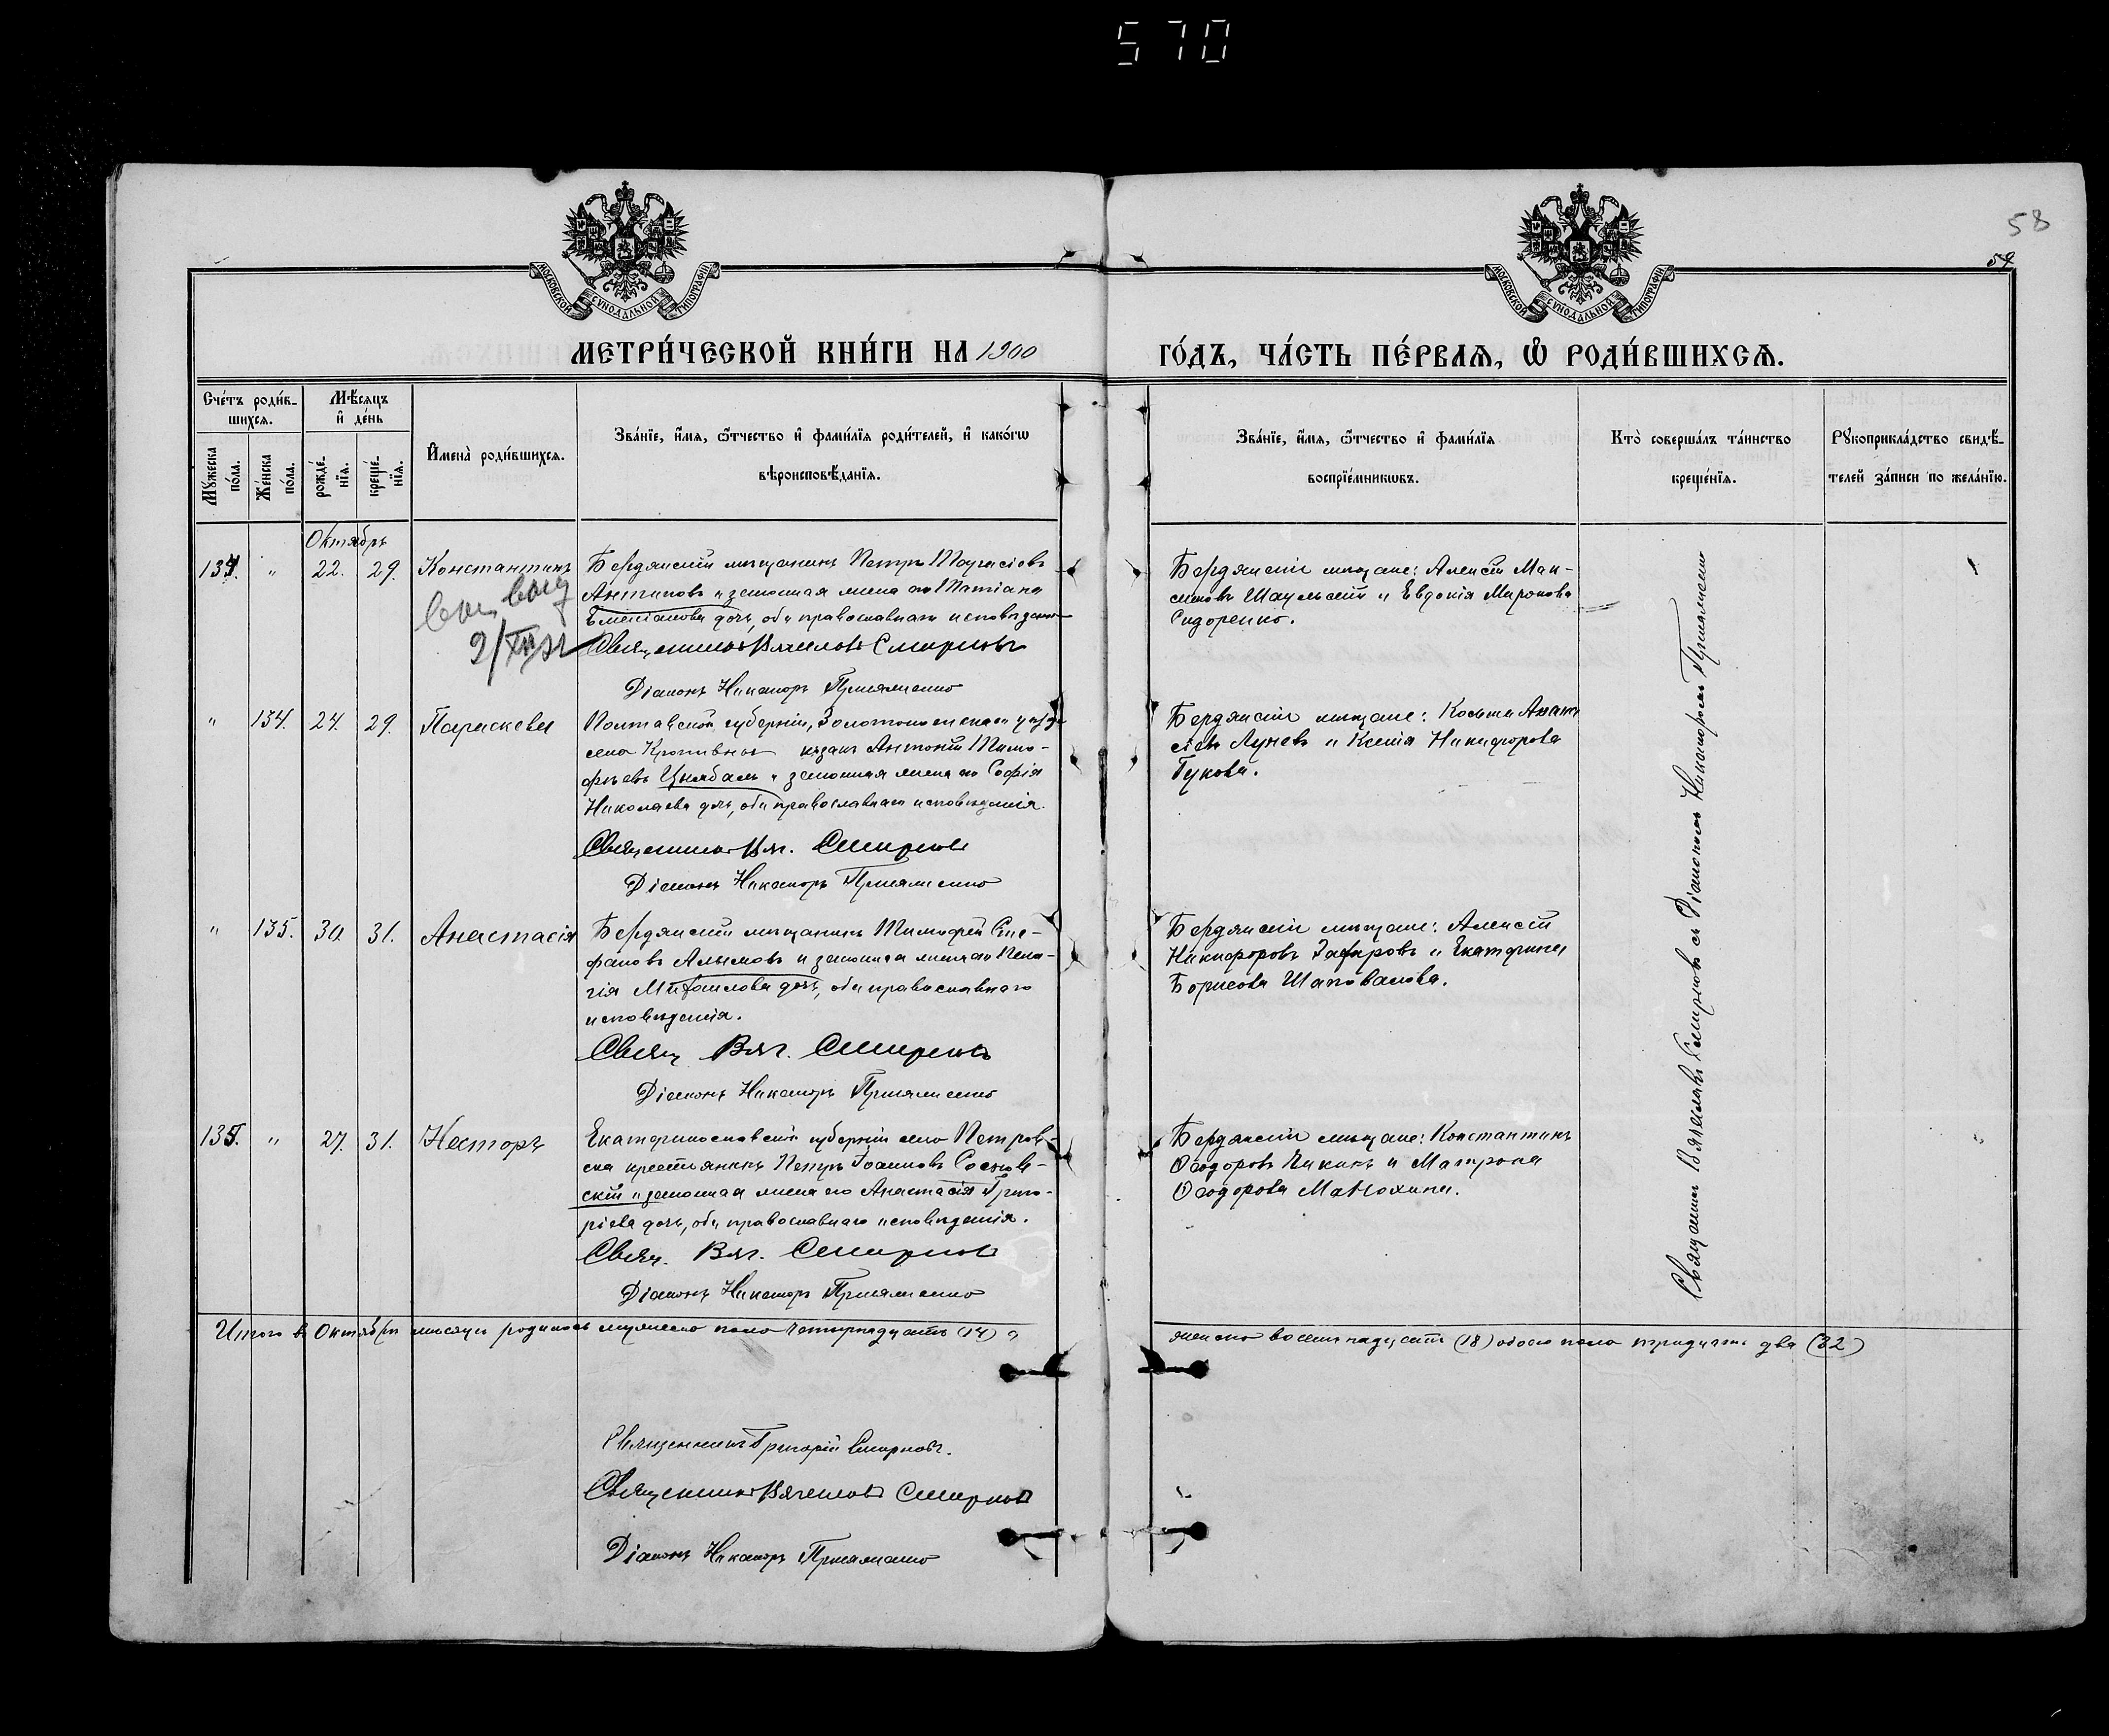 570
58
МОСКОВСКОЙ СѴНОДАЛЬНОЙ ТИПОГРАФІИ
МОСКОВСКОЙ СѴНОДАЛЬНОЙ ТИПОГРАФІИ
МЕТРИ́ЧЕСКОЙ КНИ́ГИ НА 1900
ГО́ДЪ, ЧА́СТЬ ПЕ́РВАѦ, Ѡ҆ РОДИ́ВШИХСѦ.
Сче́тъ роди́в-
шихсѧ.
Мꙋ́жеска по́ла.
Же́нска по́ла.
Мѣ́сѧцъ
и҆ де́нь
рожде́-
нїѧ.
креще́-
нїѧ.
И҆мена̀ роди́вшихсѧ.
Зва́нїе, и҆́мѧ, ѻ҆́тчество и҆ фами́лїѧ роди́телей, и҆ како́гѡ
вѣроисповѣ́данїѧ.
Зва́нїе, и҆́мѧ, ѻ҆́тчество и҆ фами́лїѧ
воспрїе́мникѡвъ.
Кто̀ соверша́лъ та́инство
креще́нїѧ.
Рꙋкоприкла́дство свидѣ́-
телей за́писи по жела́нїю.
Октябрь
134. " 22. 29. Константинъ
Бердянскій мѣщанинъ Петръ
Антиповъ и законная жена его Татіана
Емеліанова дочь, оба православнаго исповѣданія
Священникъ Вячеславъ Смирновъ
Діаконъ Никаноръ
Бердянскіе мѣщане: Алексѣй Мак-
симовъ Шаульскій и Евдокія Миронова
Сидоренко.
" 134. 24. 29. Параскева
Полтавской губерніи, Золотоношскаго уѣзда
села Кропивны казакъ Антоній Тимо-
фѣевъ Цымбалъ и законная жена его Софія
Николаева дочь, оба православнаго исповѣданія.
Священникъ Вяч. Смирновъ
Діаконъ Никаноръ
Бердянскіе мѣщане: Косьма Анаста
сіевъ Луневъ и Ксенія Никифорова
Гукова.
" 135. 30. 31. Анастасія
Бердянскій мѣщанинъ Тимофей Сте-
фановъ Алымовъ и законная жена его Пела-
гія Михаилова дочь, оба православнаго
исповѣданія.
Свящ Вяч. Смирновъ
Діаконъ Никаноръ
Бердянскіе мѣщане: Алексѣй
Никифоровъ Захаровъ и Екатерина
Борисова Шаповалова.
135. " 27. 31. Несторъ
Екатеринославской губерніи села Петров-
ска крестьянинъ Петръ Іоанновъ Соснов-
скій и законная жена его Анастасія Григо-
ріева дочь, оба православнаго исповѣданія.
Свящ. Вяч. Смирновъ
Діаконъ Никаноръ
Бердянскіе мѣщане: Константинъ
Ѳеодоровъ Пикинъ и Матрона
Ѳеодорова Манохина.
Священникъ Вячеславъ Смирновъ съ Діакономъ Никаноромъ
Итого въ Октябрѣ мѣсяцѣ родилось мужеска пола четырнадцать (14) а
женска восемнадцать (18) обоего пола тридцать два (32)
Священникъ Григорій Смирновъ.
Священникъ Вячеславъ Смирновъ
Діаконъ Никаноръ